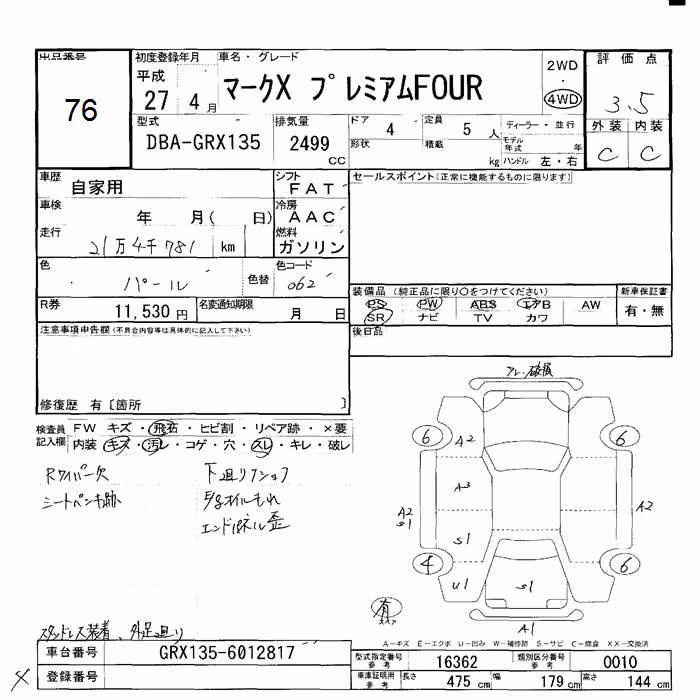 出品番号
76
初度登録年月
平成
27 4 月
車名・グレード
マークX プレミアムFOUR
2WD
・
4WD
評価点
3.5
外装 内装
C C
型式
DBA-GRX135
排気量
2499
CC
ドア 4
形状
定員 5 人
積載 kg
ディーラー・並行
モデル年式 年
ハンドル 左・右
車歴
自家用
シフト
FAT
車検
年 月( 日)
冷房
AAC
走行
21万4千781 km
燃料
ガソリン
色
パール
色替
色コード
062
R券
11,530 円
名変通知期限
月 日
セールスポイント(正常に機能するものに限ります)
装備品 (純正品に限り〇をつけてください)
PS PW ABS エアB AW
SR ナビ TV カワ
新車保証書
有・無
後日品
注意事項申告欄(不具合内容等は具体的に記入して下さい)
修復歴 有〔箇所 〕
検査員記入欄
FW キズ・飛石・ヒビ割・リペア跡・×要
内装 キズ・汚レ・コゲ・穴・スレ・キレ・破レ
Rワイパー欠
シートペンキ跡
下廻りクショフ
オイルもれ
エンドパネル歪
スタッドレス装着、外足廻り
破損
6 A2 6
A3
A2
S1
A2
S1
4 U1 S1 6
有
スペア
A1
A-キズ E-エクボ U-凹み W-補修跡 S-サビ C-腐食 XX-交換済
車台番号
GRX135-6012817
登録番号
型式指定番号
参考
16362
類別区分番号
参考
0010
車庫証明用
参考
長さ 475 cm 幅 179 cm 高さ 144 cm